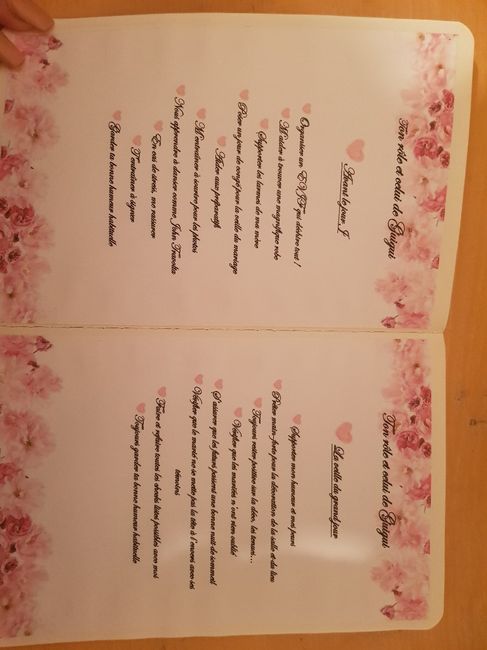 Ton rôle et celui de Guigui
Avant le jour J
Organiser un EVJF qui déchire tout !
M'aider à trouver une magnifique robe
Supporter les larmes de ma mère
Poser un jour de congé pour la veille du mariage
Aider aux préparatifs
M'entraîner à sourire pour les photos
Nous apprendre à danser comme John Travolta
En cas de doute, me rassurer
T'entraîner à signer
Garder ta bonne humeur habituelle
Ton rôle et celui de Guigui
La veille du grand jour
Supporter mon humeur et mes peurs
Prêter main-forte pour la décoration de la salle et du lieu
Toujours rester positive sur la déco, les tenues...
Vérifier que les mariés n'ont rien oublié
S'assurer que les futurs passent une bonne nuit de sommeil
Vérifier que le marié ne se mette pas la tête à l'envers avec ses
témoins
Faire et refaire toutes les check listes possibles avec moi
Toujours garder ta bonne humeur habituelle